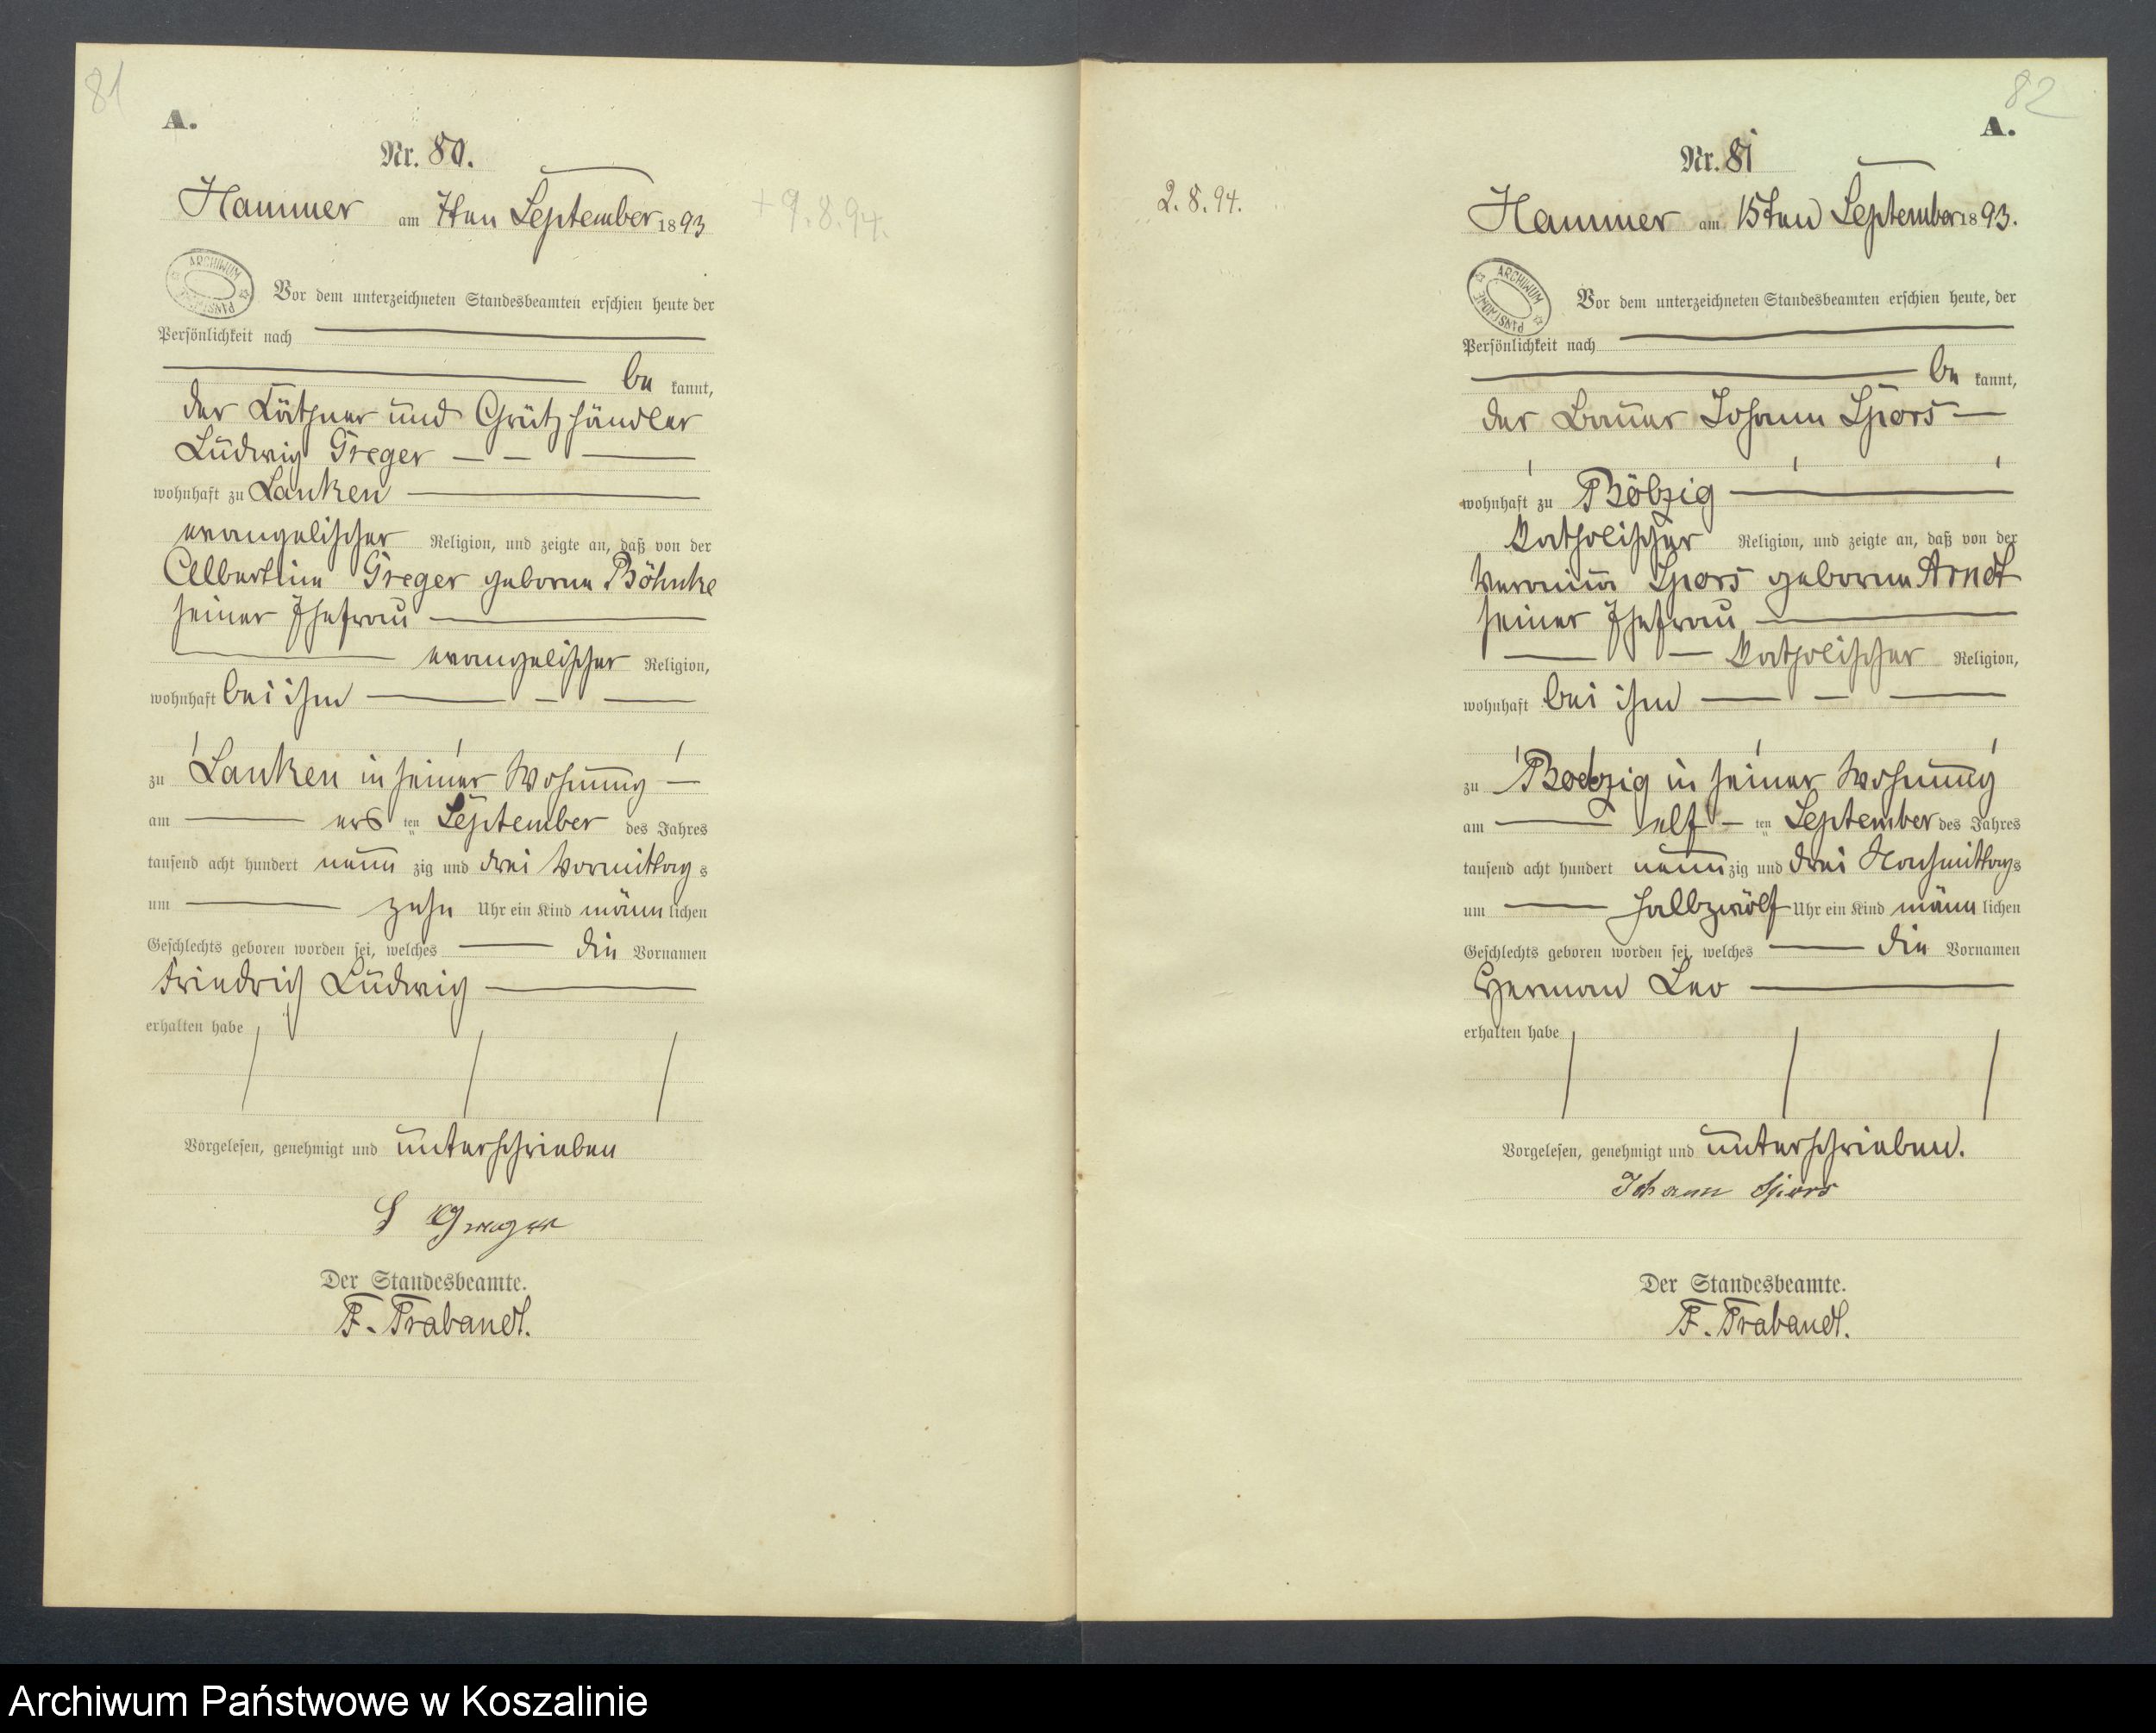 81
A.
Nr. 80.
Hammer am 7ten September 1893
+ 9.8.94.
ARCHIWUM PAŃSTWOWE
Vor dem unterzeichneten Standesbeamten erschien heute der
Persönlichkeit nach
be kannt,
der Käthner und Grützhändler
Ludwig Greger
wohnhaft zu Lanken
evangelischer Religion, und zeigte an, daß von der
Albertine Greger geborne Böhnke
seiner Ehefrau
evangelischer Religion,
wohnhaft bei ihm
zu Lanken in seiner Wohnung
am ersten September des Jahres
tausend acht hundert neun zig und drei Vormittag s
um zehn Uhr ein Kind männ lichen
Geschlechts geboren worden sei, welches die Vornamen
Friedrich Ludwig
erhalten habe
Vorgelesen, genehmigt und unterschrieben
L Greger
Der Standesbeamte.
F. Trabandt.
82
A.
Nr. 81
2.8.94.
Hammer am 15ten September 1893.
ARCHIWUM PAŃSTWOWE
Vor dem unterzeichneten Standesbeamten erschien heute, der
Persönlichkeit nach
be kannt,
der Bauer Johann Spors
wohnhaft zu Bölzig
katholischer Religion, und zeigte an, daß von der
Veronika Spors geborne Arndt
seiner Ehefrau
katholischer Religion,
wohnhaft bei ihm
zu Boelzig in seiner Wohnung
am elf ten September des Jahres
tausend acht hundert neun zig und drei Nachmittags
um halbzwölf Uhr ein Kind männ lichen
Geschlechts geboren worden sei, welches die Vornamen
Herman Leo
erhalten habe
Vorgelesen, genehmigt und unterschrieben.
Johann Spors
Der Standesbeamte.
F. Trabandt.
Archiwum Państwowe w Koszalinie